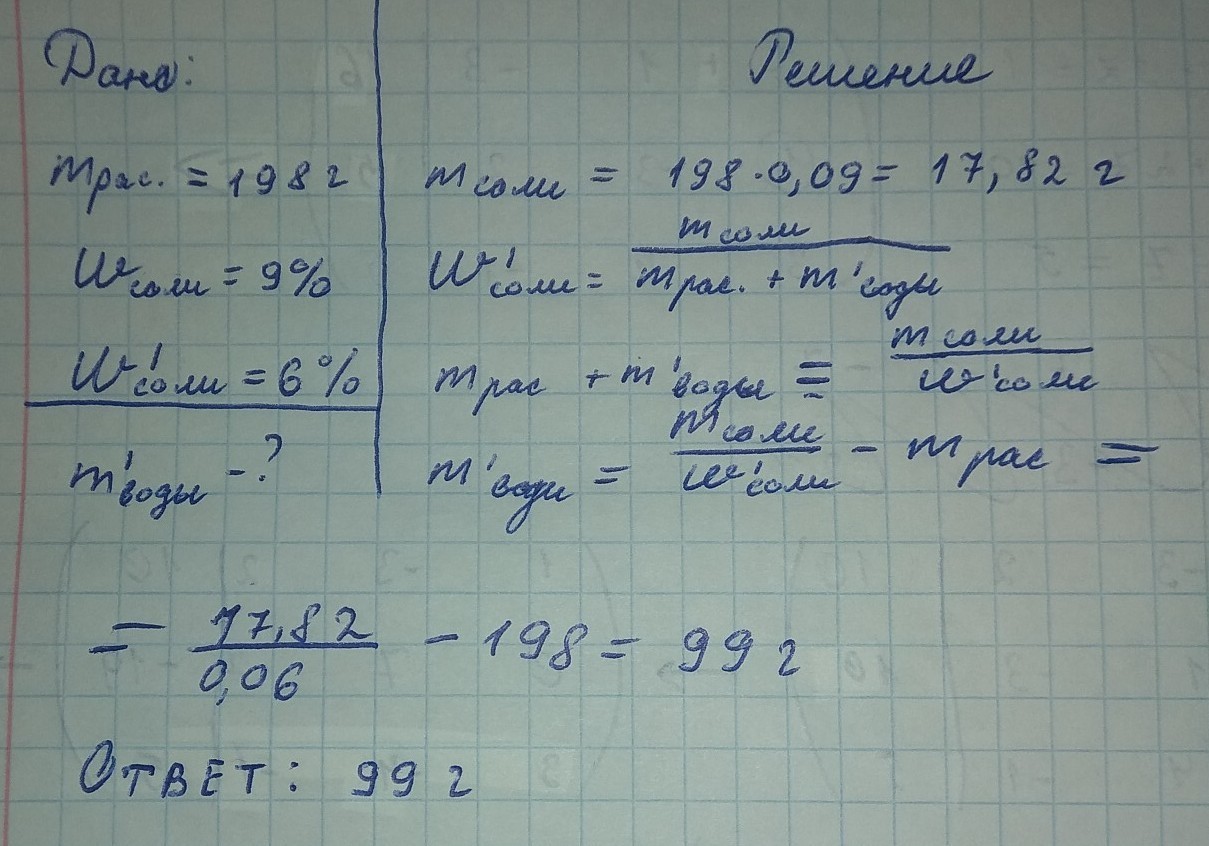 Дано:
mрас. = 198 г
Wсоли = 9%
W'соли = 6%
m'воды - ?
Решение
mсоли = 198 · 0,09 = 17,82 г
W'соли = mсоли / mрас. + m'воды
mрас + m'воды = mсоли / w'соли
m'воды = mсоли / w'соли - mрас =
= 17,82 / 0,06 - 198 = 99 г
Ответ: 99 г